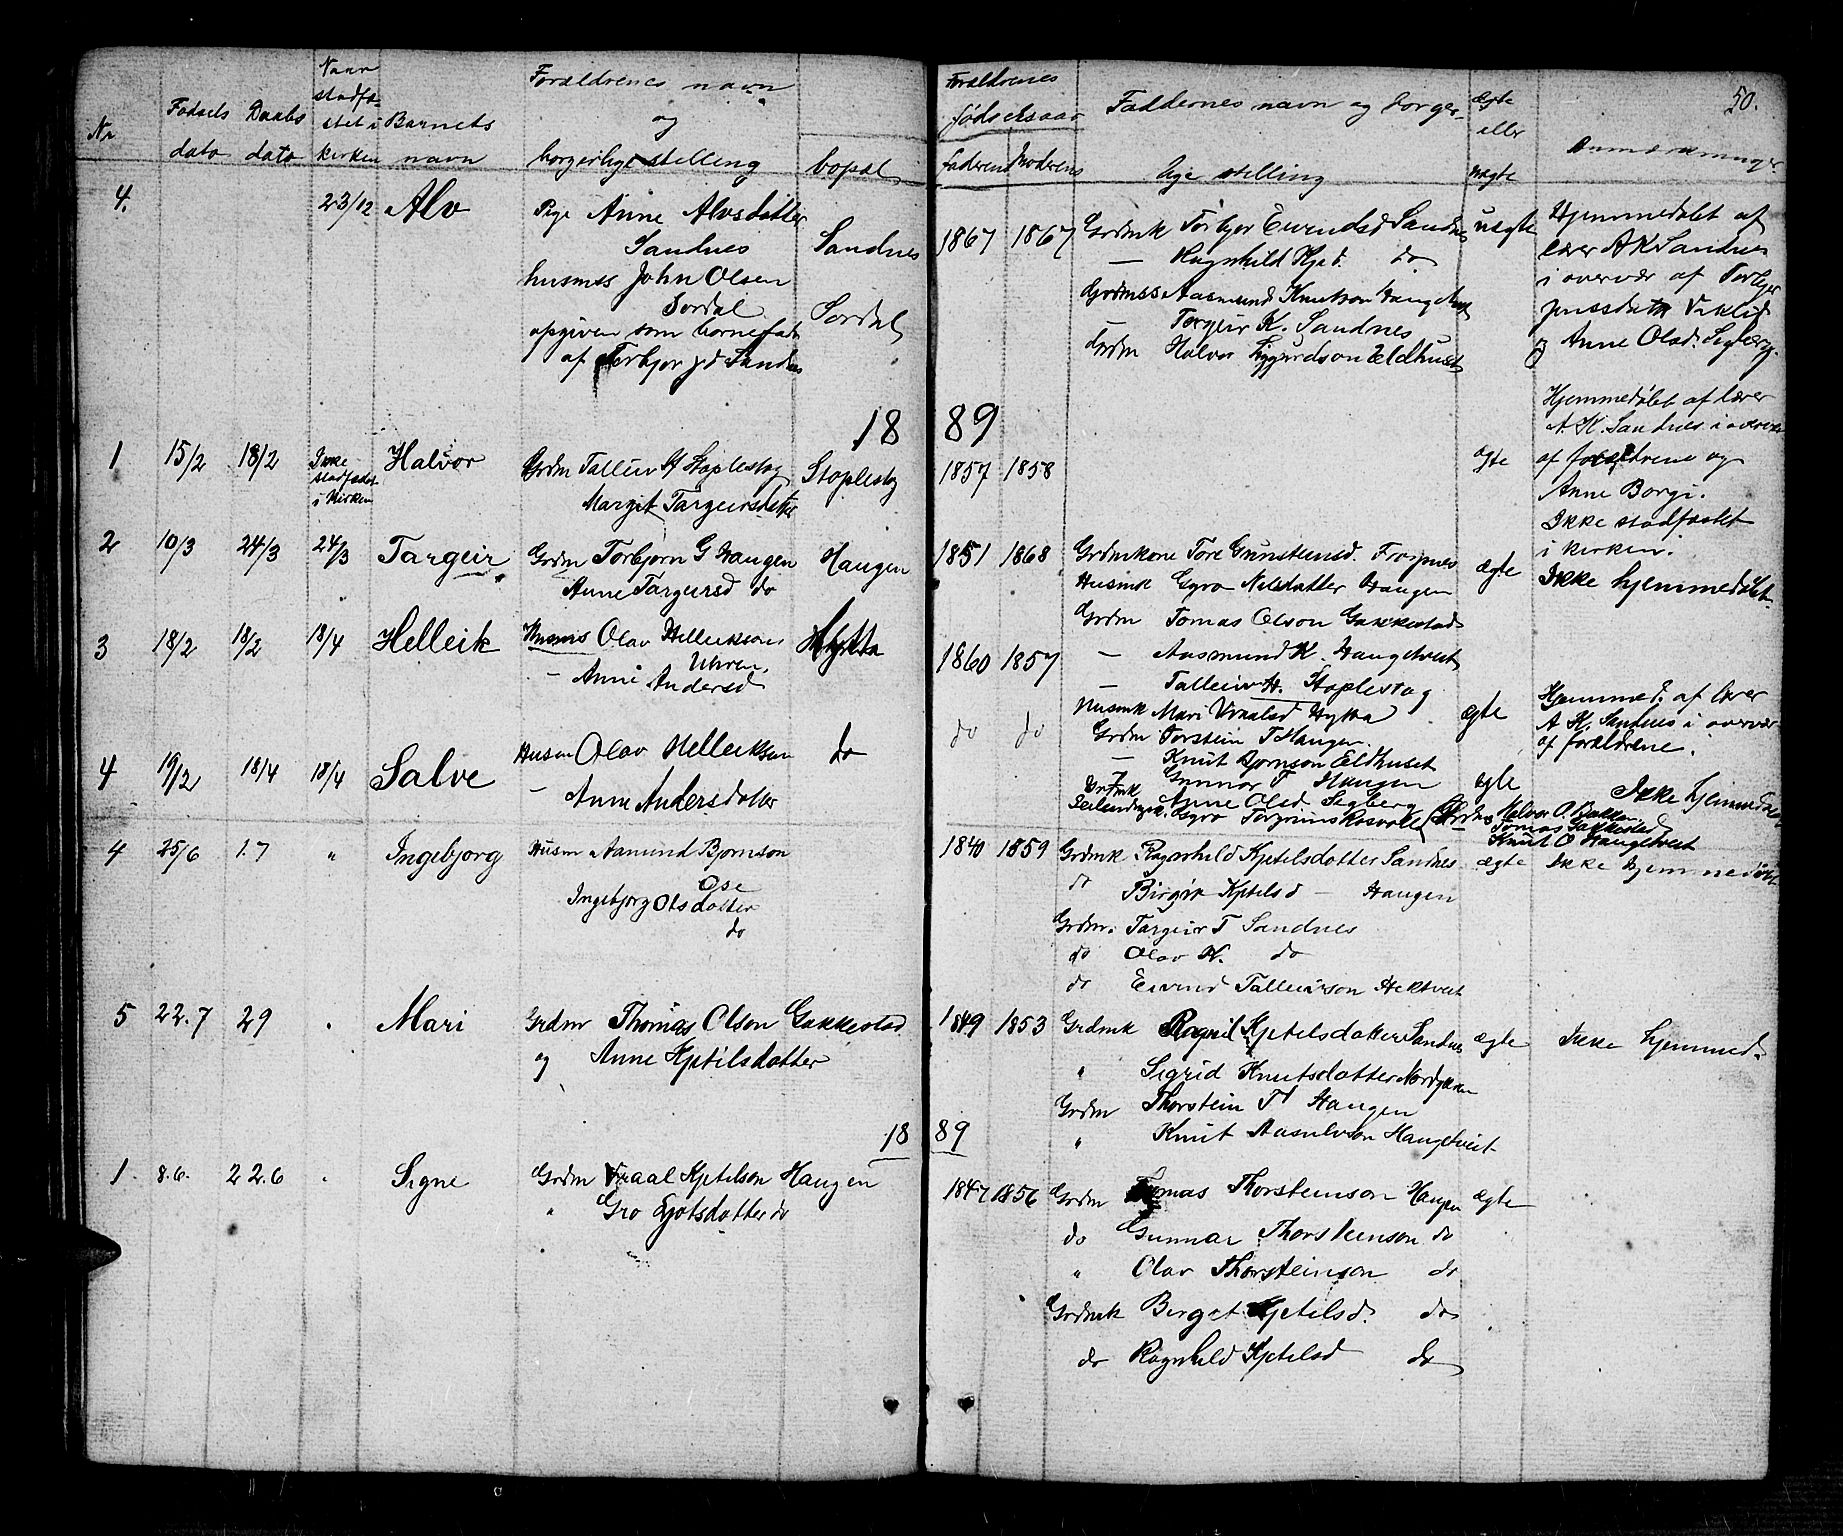 50.
Nr
Fødsels dato
Daabs dato
Naar stadfæstet i kirken
Barnets navn
Forældrenes navn og borgerlige stilling
bopæl
Forældrenes fødselsaar
faderens
moderens
Faddernes navn og borgerlige stilling
ægte eller uægte
Anmærkninger
4.
23/12
Alv
Pige Anne Alvsdatter
Sandnes
husmss John Olsen
Sordal
opgiven som barnefader
af Torbjør Sandnes
Sandnes
Sordal
1867 1867
Grdmk Torbjør Eivendsd Sandnes
— Ragnhild Kjed. do
Grdmss Aasmund Knutson Haugetveit
Torgeir K. Sandnes
Grdm Halvor Syggurdson Eldhuset
uægte
Hjemmedøbt af
lærer A K Sandnes
i overvær af Torbjør
og Anne Olsd. Segberg.
1889
1 15/2 18/2
Ikke
stadfæstet
i kirken
Halvor
Grdm Talleiv H Staplestog
Margit Targeirsdatter
Staplestog
1857 1858
ægte
Hjemmedøbt af lærer
A. K. Sandnes i overvær
af forældrene og
Anne Borgi.
Ikke stadfæstet
i kirken.
2 10/3 24/3 24/3
Targeir
Grdm Torbjørn G Haugen
Anne Targeirsd do
Haugen
1851 1868
Grdmkone Tore Gunsteinsd. Froysnes
Husmk Gyro Nilsdatter Haugen
Grdm Tomas Olson Gakkestad
— Aasmund K. Haugetveit
— Talleiv H. Staplestog
ægte
Ikke hjemmedøbt.
3 18/2 18/2 18/4
Helleik
Husms Olav Helleikson
Uhren,
— Anne Andersd
Hytta
1860 1857
Husmk Mari Vraalsd Hytta
Grdm Torstein T Haugen.
— Knut Bjørnson Eldhuset
ægte
Hjemmed. af lærer
A K. Sandnes i overvær
af forældrene.
4 19/2 18/4 18/4
Salve
Husm Olav Helleikson
— Anne Andersdatter
do
do do
Gunnar T Haugen
Anne Olsd Segberg
Gyro Torgrims Rosvold
Halvor O. Bakken
Tomas Gakkestad
Knut O Haugetveit
ægte
Ikke hjemmedøbt
4 25/6 1.7 "
Ingebjorg
Husm Aamund Bjornson
Ose
Ingebjorg Olsdatter
do
1840 1859
Grdmk Ragnhild Kjetilsdatter Sandnes
do Birgit Kjetilsd — Haugen
Grdm. Targeir T Sandnes
do Olav K. do
do Eivind Talleivson Hektveit
ægte
Ikke hjemmedøbt
5 22.7 29
Mari
Grdm Thomas Olson Gakkestad
og Anne Kjetilsdatter
1849 1853
Grdmk Ragnil Kjetilsdatter Sandnes
" Sigrid Knutsdatter Nordgaren
Grdm Thorstein T Haugen
" Knut Aasulvson Haugetveit
ægte
Ikke hjemmed.
1889
1. 8.6. 22.6
Signe
Grdm Vraal Kjetilson Haugen
" Gro Ljotsdatter do
1847 1856
Grdm Tomas Thorsteinson Haugen
do Gunnar Thorsteinson do
" Olav Thorsteinson do
Grdmk Berget Kjetilsd. do
do Ragnhild Kjetilsd do
ægte